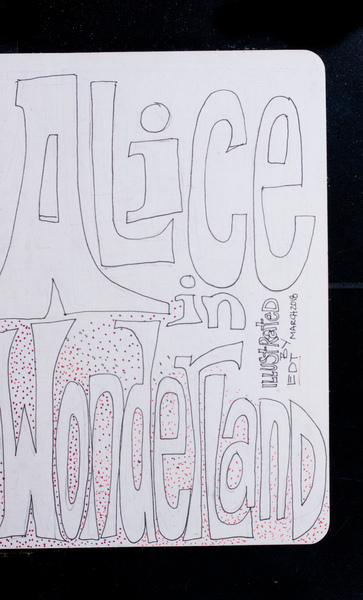 Alice
in
Wonderland
ILLUSTRATED
BY
EDT MARCH 2018